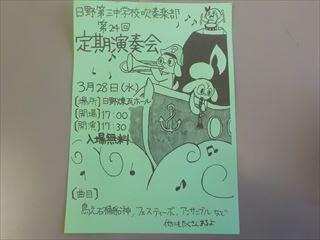 日野第三中学校吹奏楽部
第24回
定期演奏会
3月28日(水)
【場所】日野煉瓦ホール
【開場】17:00
【開演】17:30
入場無料
【曲目】
鳥之石楠船神, フェスティーボ, アンサンブル など
他にもたくさんあるよ